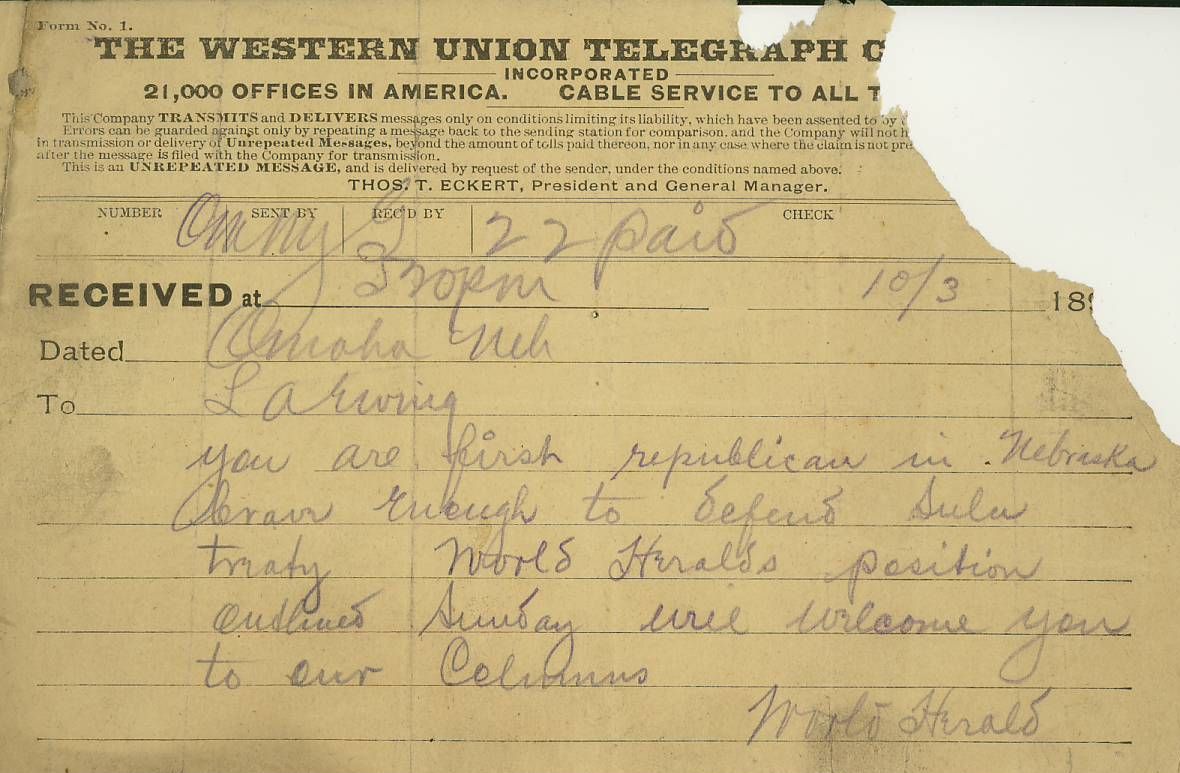 Form No. 1.
THE WESTERN UNION TELEGRAPH C
INCORPORATED
21,000 OFFICES IN AMERICA. CABLE SERVICE TO ALL T
This Company TRANSMITS and DELIVERS messages only on conditions limiting its liability, which have been assented to by
Errors can be guarded against only by repeating a message back to the sending station for comparison, and the Company will not h
in transmission or delivery of Unrepeated Messages, beyond the amount of tolls paid thereon, nor in any case where the claim is not pre
after the message is filed with the Company for transmission.
This is an UNREPEATED MESSAGE, and is delivered by request of the sender, under the conditions named above.
THOS. T. ECKERT, President and General Manager.
NUMBER SENT BY REC'D BY CHECK
22 paid
RECEIVED at 10/3 189
Dated Omaha Neb
To L A Ewing
you are first republican in Nebraska
brave enough to defend Sulu
treaty World Heralds position
outlined Sunday will welcome you
to our Columns
World Herald